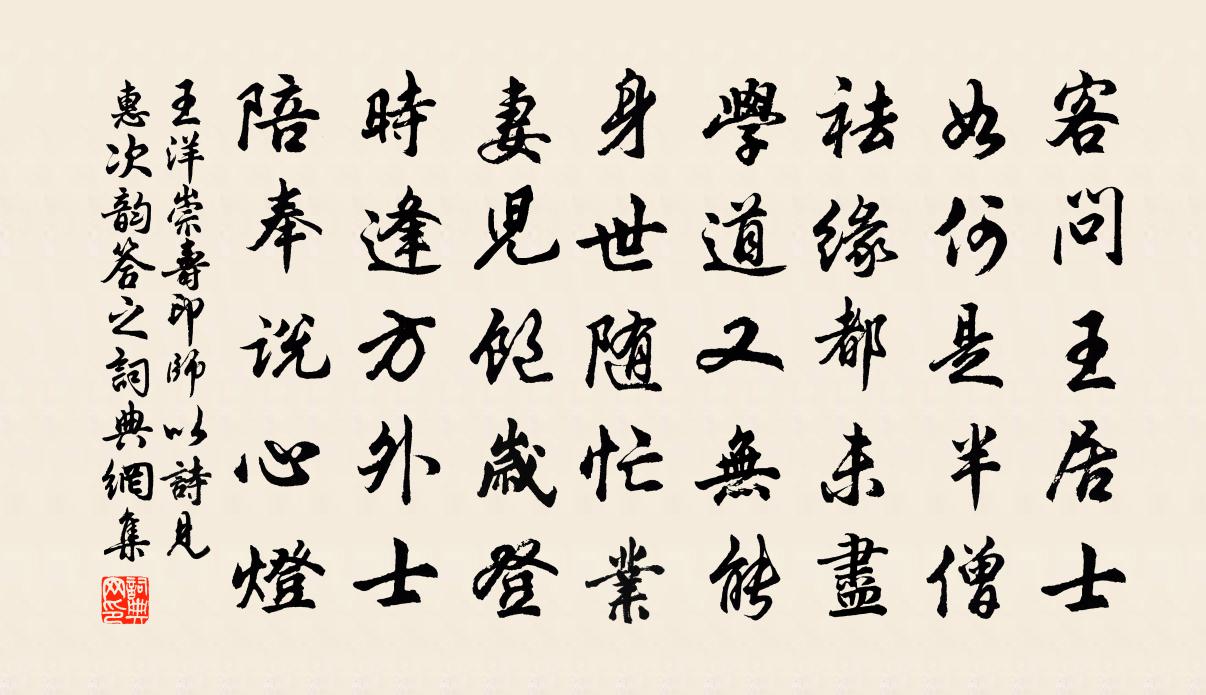 客問王居士
如何是半僧
祛緣都未盡
學道又無能
身世随忙業
妻兒飽歲登
時逢方外士
陪奉説心燈
王洋崇壽印師以詩見
惠次韵荅之詞典網集
詞典网印